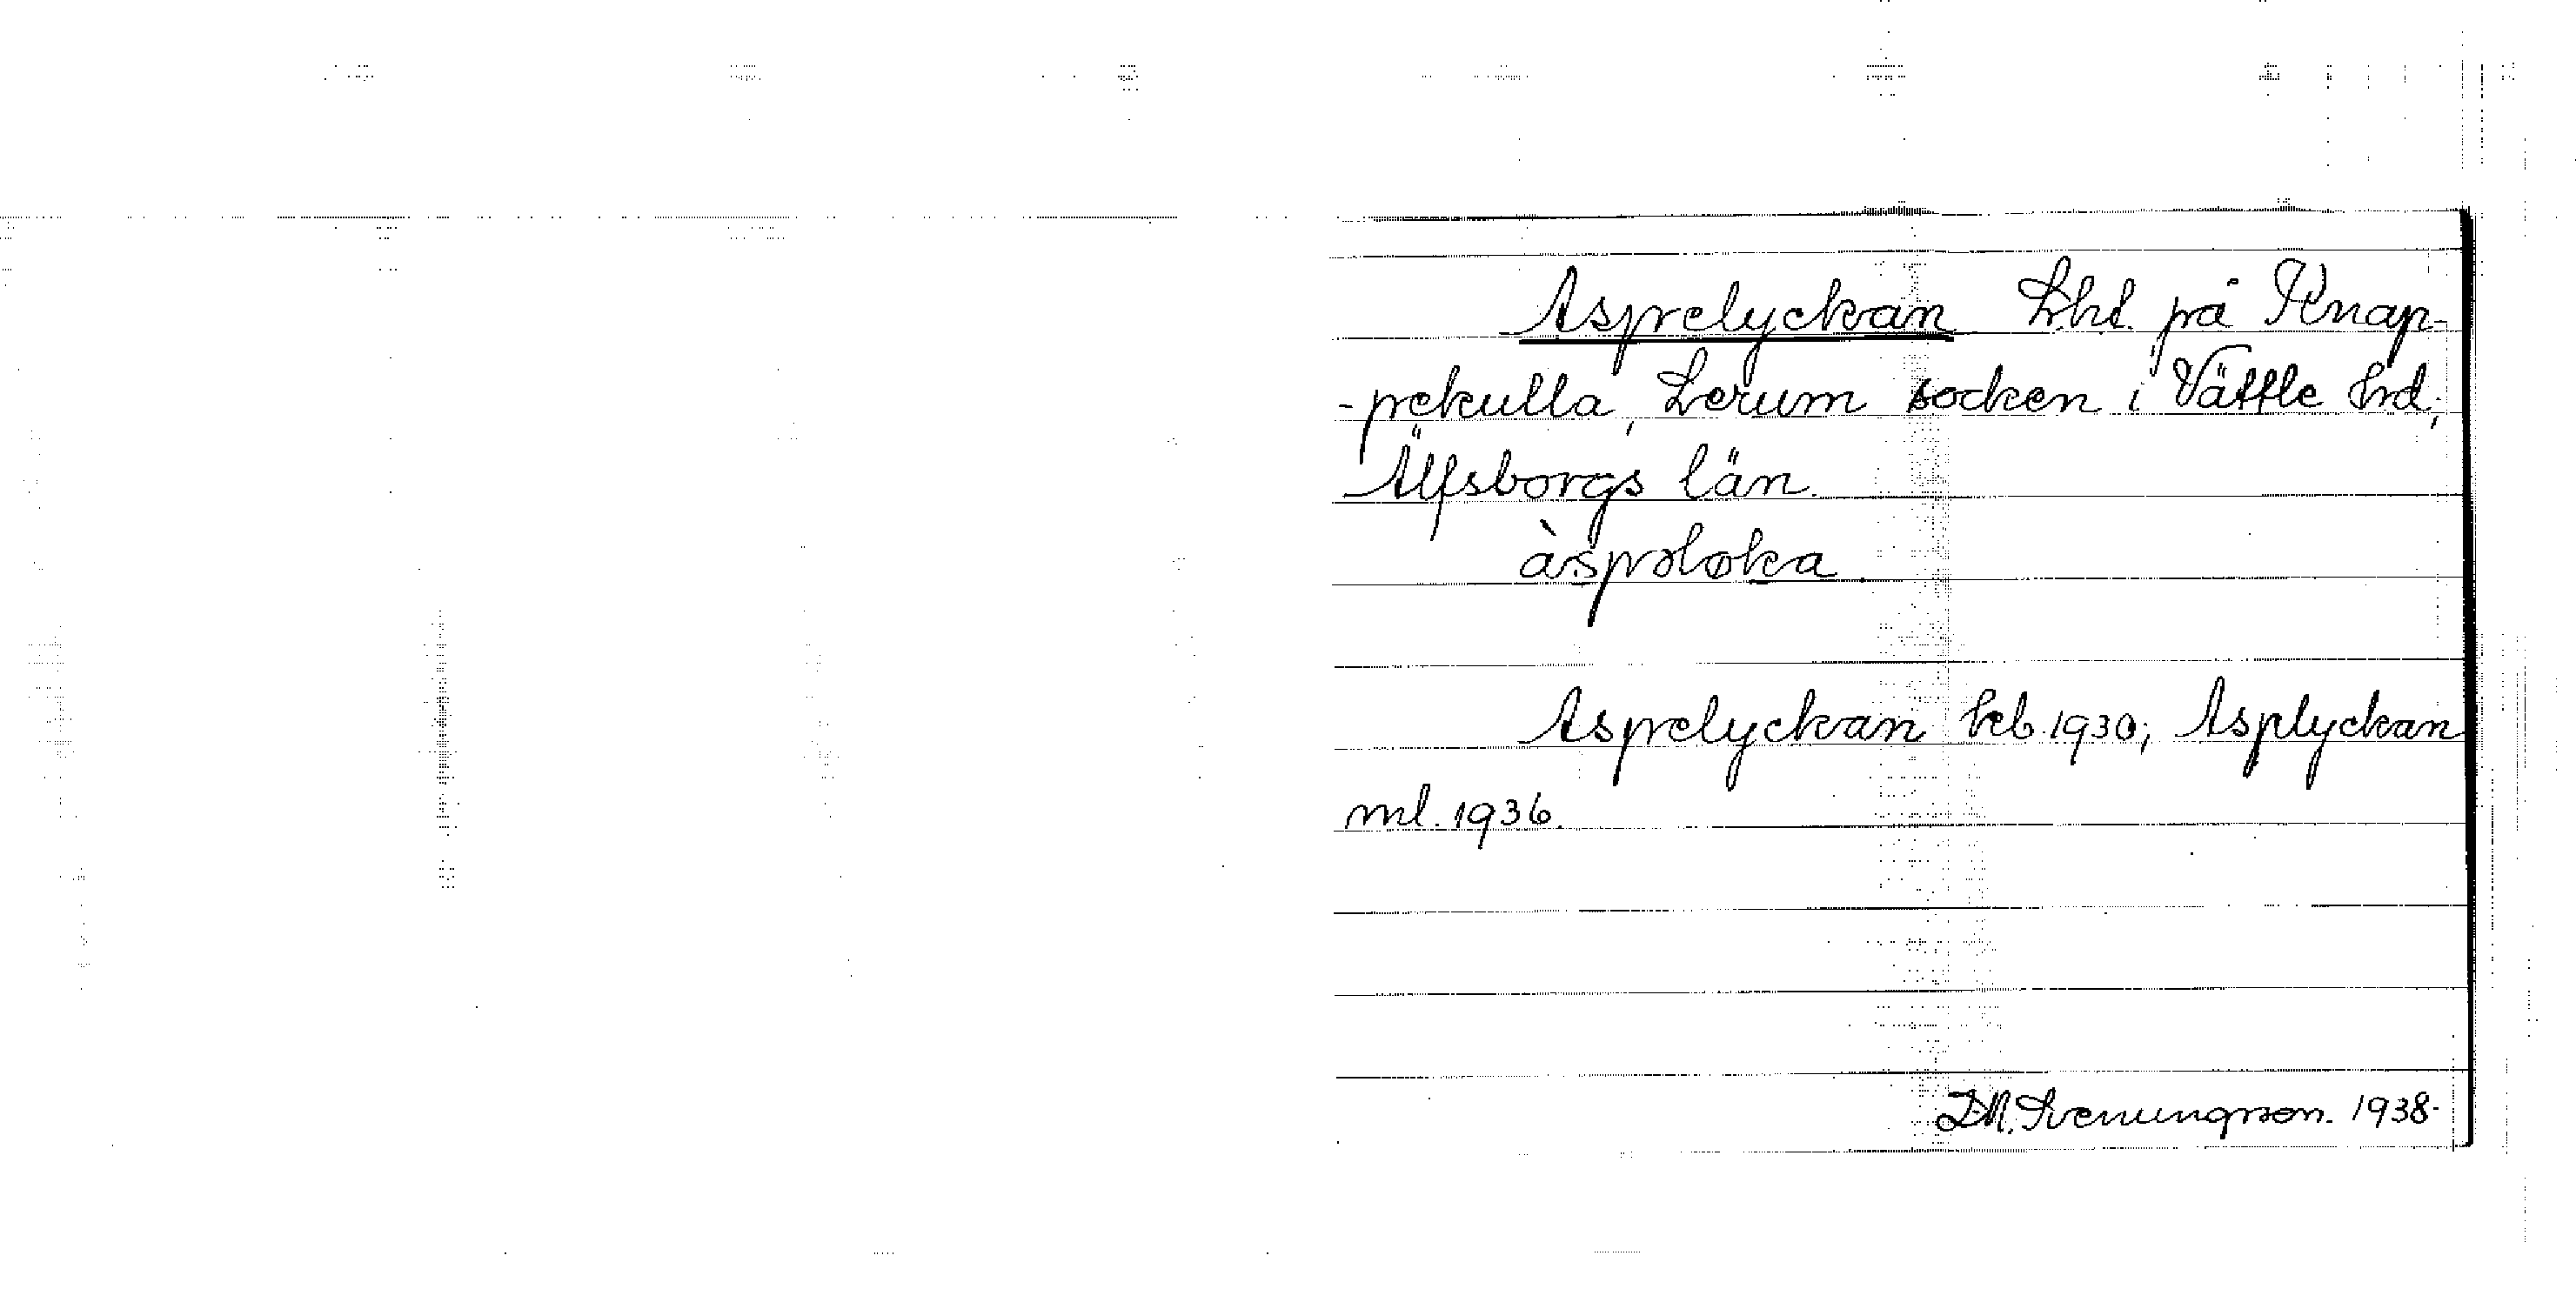 Aspelyckan Lht. på Knap-
-pekulla, Lerum socken i Vättle hrd,
Älfsborgs län.
àspəløka
Aspelyckan hcb. 1930; Asplyckan
ml. 1936.
I.M. Svenungsson. 1938.